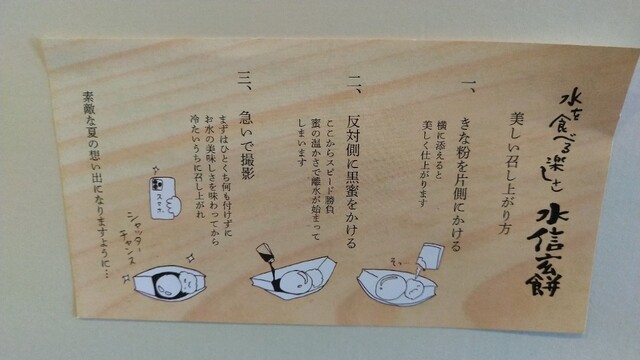 水を食べる楽しさ
水信玄餅
美しい召し上がり方
一、きな粉を片側にかける
横に添えると
美しく仕上がります
そっ…
二、反対側に黒蜜をかける
ここからスピード勝負
蜜の温かさで離水が始まって
しまいます
三、急いで撮影
まずはひとくち何も付けずに
お水の美味しさを味わってから
冷たいうちに召し上がれ
スマホ
シャッター
チャンス
素敵な夏の想い出になりますように…